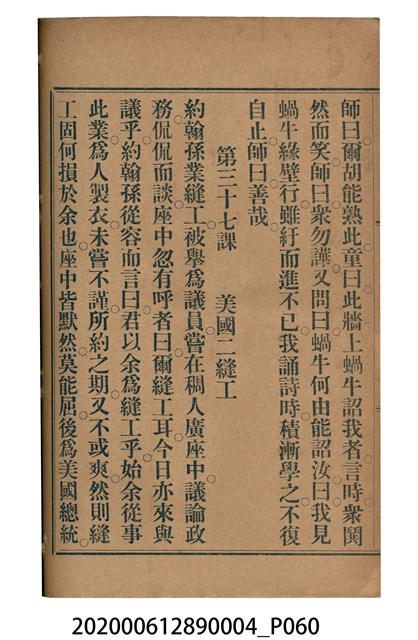 師曰爾胡能熟此童曰此牆上蝸牛詔我者言時衆鬨
然而笑師曰衆勿譁又問曰蝸牛何由能詔汝曰我見
蝸牛緣壁行雖紆而進不已我誦詩時積漸學之不復
自止師曰善哉
第三十七課　美國二縫工
約翰孫業縫工被舉爲議員嘗在稠人廣座中議論政
務侃侃而談座中忽有呼者曰爾縫工耳今日亦來與
議乎約翰孫從容而言曰君以余爲縫工乎始余從事
此業爲人製衣未嘗不謹所約之期又不或爽然則縫
工固何損於余也座中皆默然莫能屈後爲美國總統
202000612890004_P060